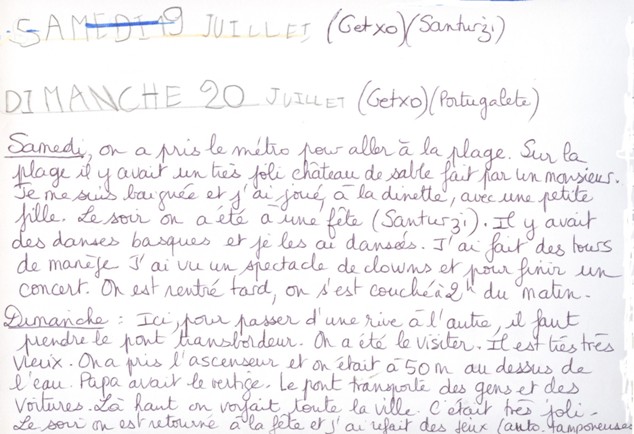 SAMEDI 19 JUILLET (Getxo)(Santurzi)
DIMANCHE 20 JUILLET (Getxo)(Portugalete)
Samedi, on a pris le métro pour aller à la plage. Sur la
plage il y avait un très joli château de sable fait par un monsieur.
Je me suis baignée et j'ai joué, à la dinette, avec une petite
fille. Le soir on a été à une fête (Santurzi). Il y avait
des danses basques et je les ai dansées. J'ai fait des tours
de manège J'ai vu un spectacle de clowns et pour finir un
concert. On est rentré tard, on s'est couché à 2h du matin.
Dimanche : Ici, pour passer d'une rive à l'autre, il faut
prendre le pont transbordeur. On a été le visiter. Il est très très
vieux. On a pris l'ascenseur et on était à 50 m au dessus de
l'eau. Papa avait le vertige. Le pont transporte des gens et des
voitures. Là haut on voyait toute la ville. C'était très joli.
Le soir on est retourné à la fête et j'ai refait des jeux (auto. tamponeuses